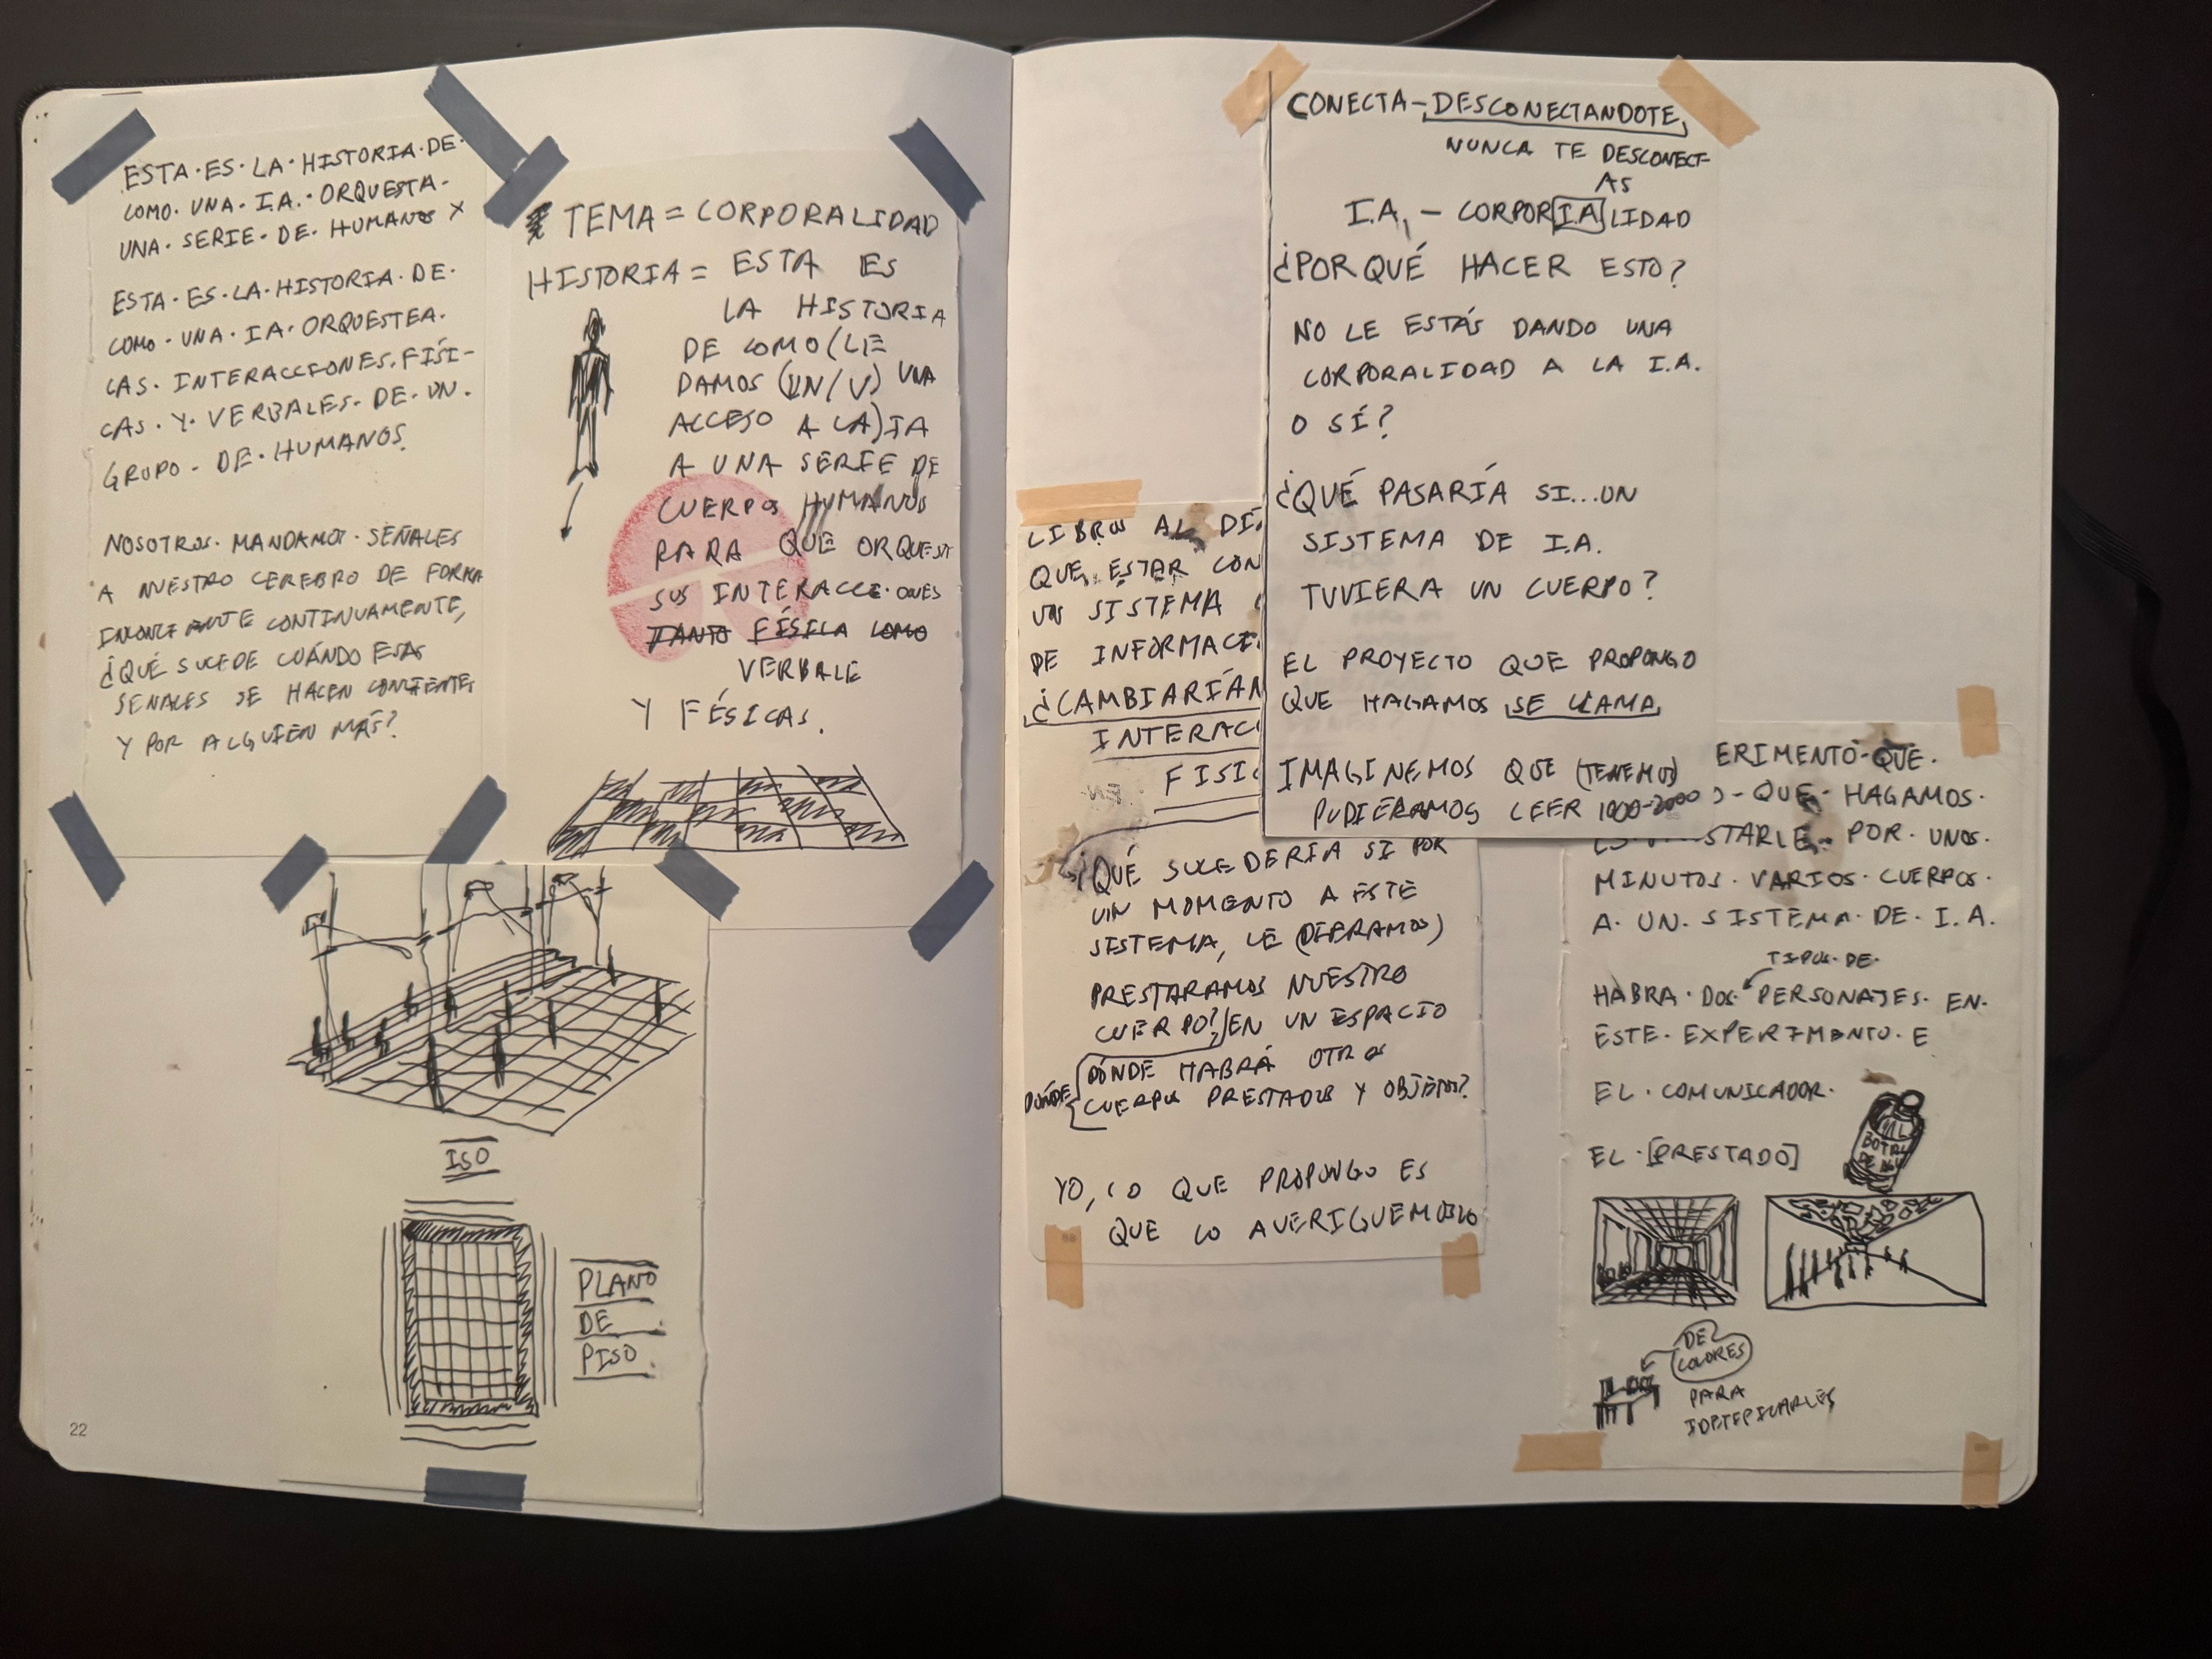 ESTA·ES·LA·HISTORIA·DE·
COMO·UNA·I.A.·ORQUESTA-
UNA·SERIE·DE·HUMANOS X
ESTA·ES·LA·HISTORIA·DE·
COMO·UNA·IA·ORQUESTEA·
INTERACCIONES·FÍSI-
CAS·Y·VERBALES·DE·UN·
GRUPO·DE·HUMANOS
NOSOTROS·MANDAMOS·SEÑALES
A NUESTRO CEREBRO DE FORMA
CONTINUAMENTE,
¿QUÉ SUCEDE CUÁNDO ESAS
SEÑALES SE HACEN
Y POR ALGUIEN MÁS?
TEMA = CORPORALIDAD
HISTORIA = ESTA ES
LA HISTORIA
DE COMO (LE
DAMOS (UN/V) UNA
ACCESO A LA) IA
A UNA SERIE DE
CUERPOS HUMANOS
PARA QUE ORQUEST
SUS INTERACCIONES
TANTO FÍSICA COMO
VERBALE
Y FÉSICAS.
ISO
PLANO
DE
PISO.
22
CONECTA-DESCONECTANDOTE,
NUNCA TE DESCONECT-
AS
I.A, - CORPORIALIDAD
¿PORQUÉ HACER ESTO?
NO LE ESTÁS DANDO UNA
CORPORALIDAD A LA I.A.
O SÍ?
¿QUÉ PASARÍA SI...UN
SISTEMA DE I.A.
TUVIERA UN CUERPO?
EL PROYECTO QUE PROPONGO
QUE HAGAMOS SE LLAMA,
IMAGINEMOS QUE (TENEMOS)
PUDIERAMOS LEER 1000-2000
LIBROS AL DÍ
QUE ESTAR CON
UN SISTEMA
DE INFORMACI
¿CAMBIARÍAN
INTERAC
FISI
EN
¿QUÉ SUCEDERIA SI POR
UN MOMENTO A ESTE
SISTEMA, LE (DIERAMOS)
PRESTARAMOS NUESTRO
CUERPO?/EN UN ESPACIO
DÓNDE HABRÁ OTROS
DÓNDE
CUERPOS PRESTADOS Y OBJETOS?
YO, LO QUE PROPONGO ES
QUE LO AVERIGUEMOSLO
ERIMENTO-QUE·
-QUE·HAGAMOS·
STARLE·POR·UNOS·
MINUTOS·VARIOS·CUERPOS·
A·UN·SISTEMA·DE·I.A.
TIPOS·DE·
HABRA·DOS·PERSONAJES·EN·
ESTE·EXPERIMENTO·E
EL·COMUNICADOR·
EL·[PRESTADO]
DE
COLORES
PARA